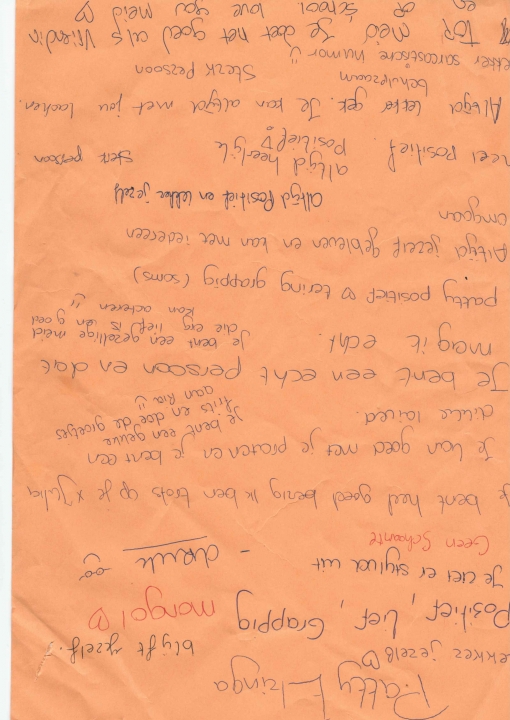 Patty Elzinga
Lekker jezelf ♡
blijft jezelf!
Positief, Lief, Grappig mongol ♡
Je ziet er stijlvol uit
Geen Schaamte
Je bent heel goed bezig ik ben trots op je x Julia
Je kan goed met je praten en je bent een
Je bent een geluve
frits en doe de groetjes
aan Ria
Je bent een echt persoon en dat
mag ik echt.
Je bent een gezellige meid
die erg lief is en goed
kan acteren
patty positief ♡ tering grappig (soms)
Altijd jezelf gebleven en kan met iedereen
omgaan
Altijd Positief en lekker jezelf
heel positief.
altijd heerlijk
Positief!
sterk persoon
Altijd lekker gek. Je kan altijd met jou lachen.
behulpzaam
Sterk Persoon
lekker sarcastische humor
TOP med Je doet het goed als vriendin
en op school love you meid ♡